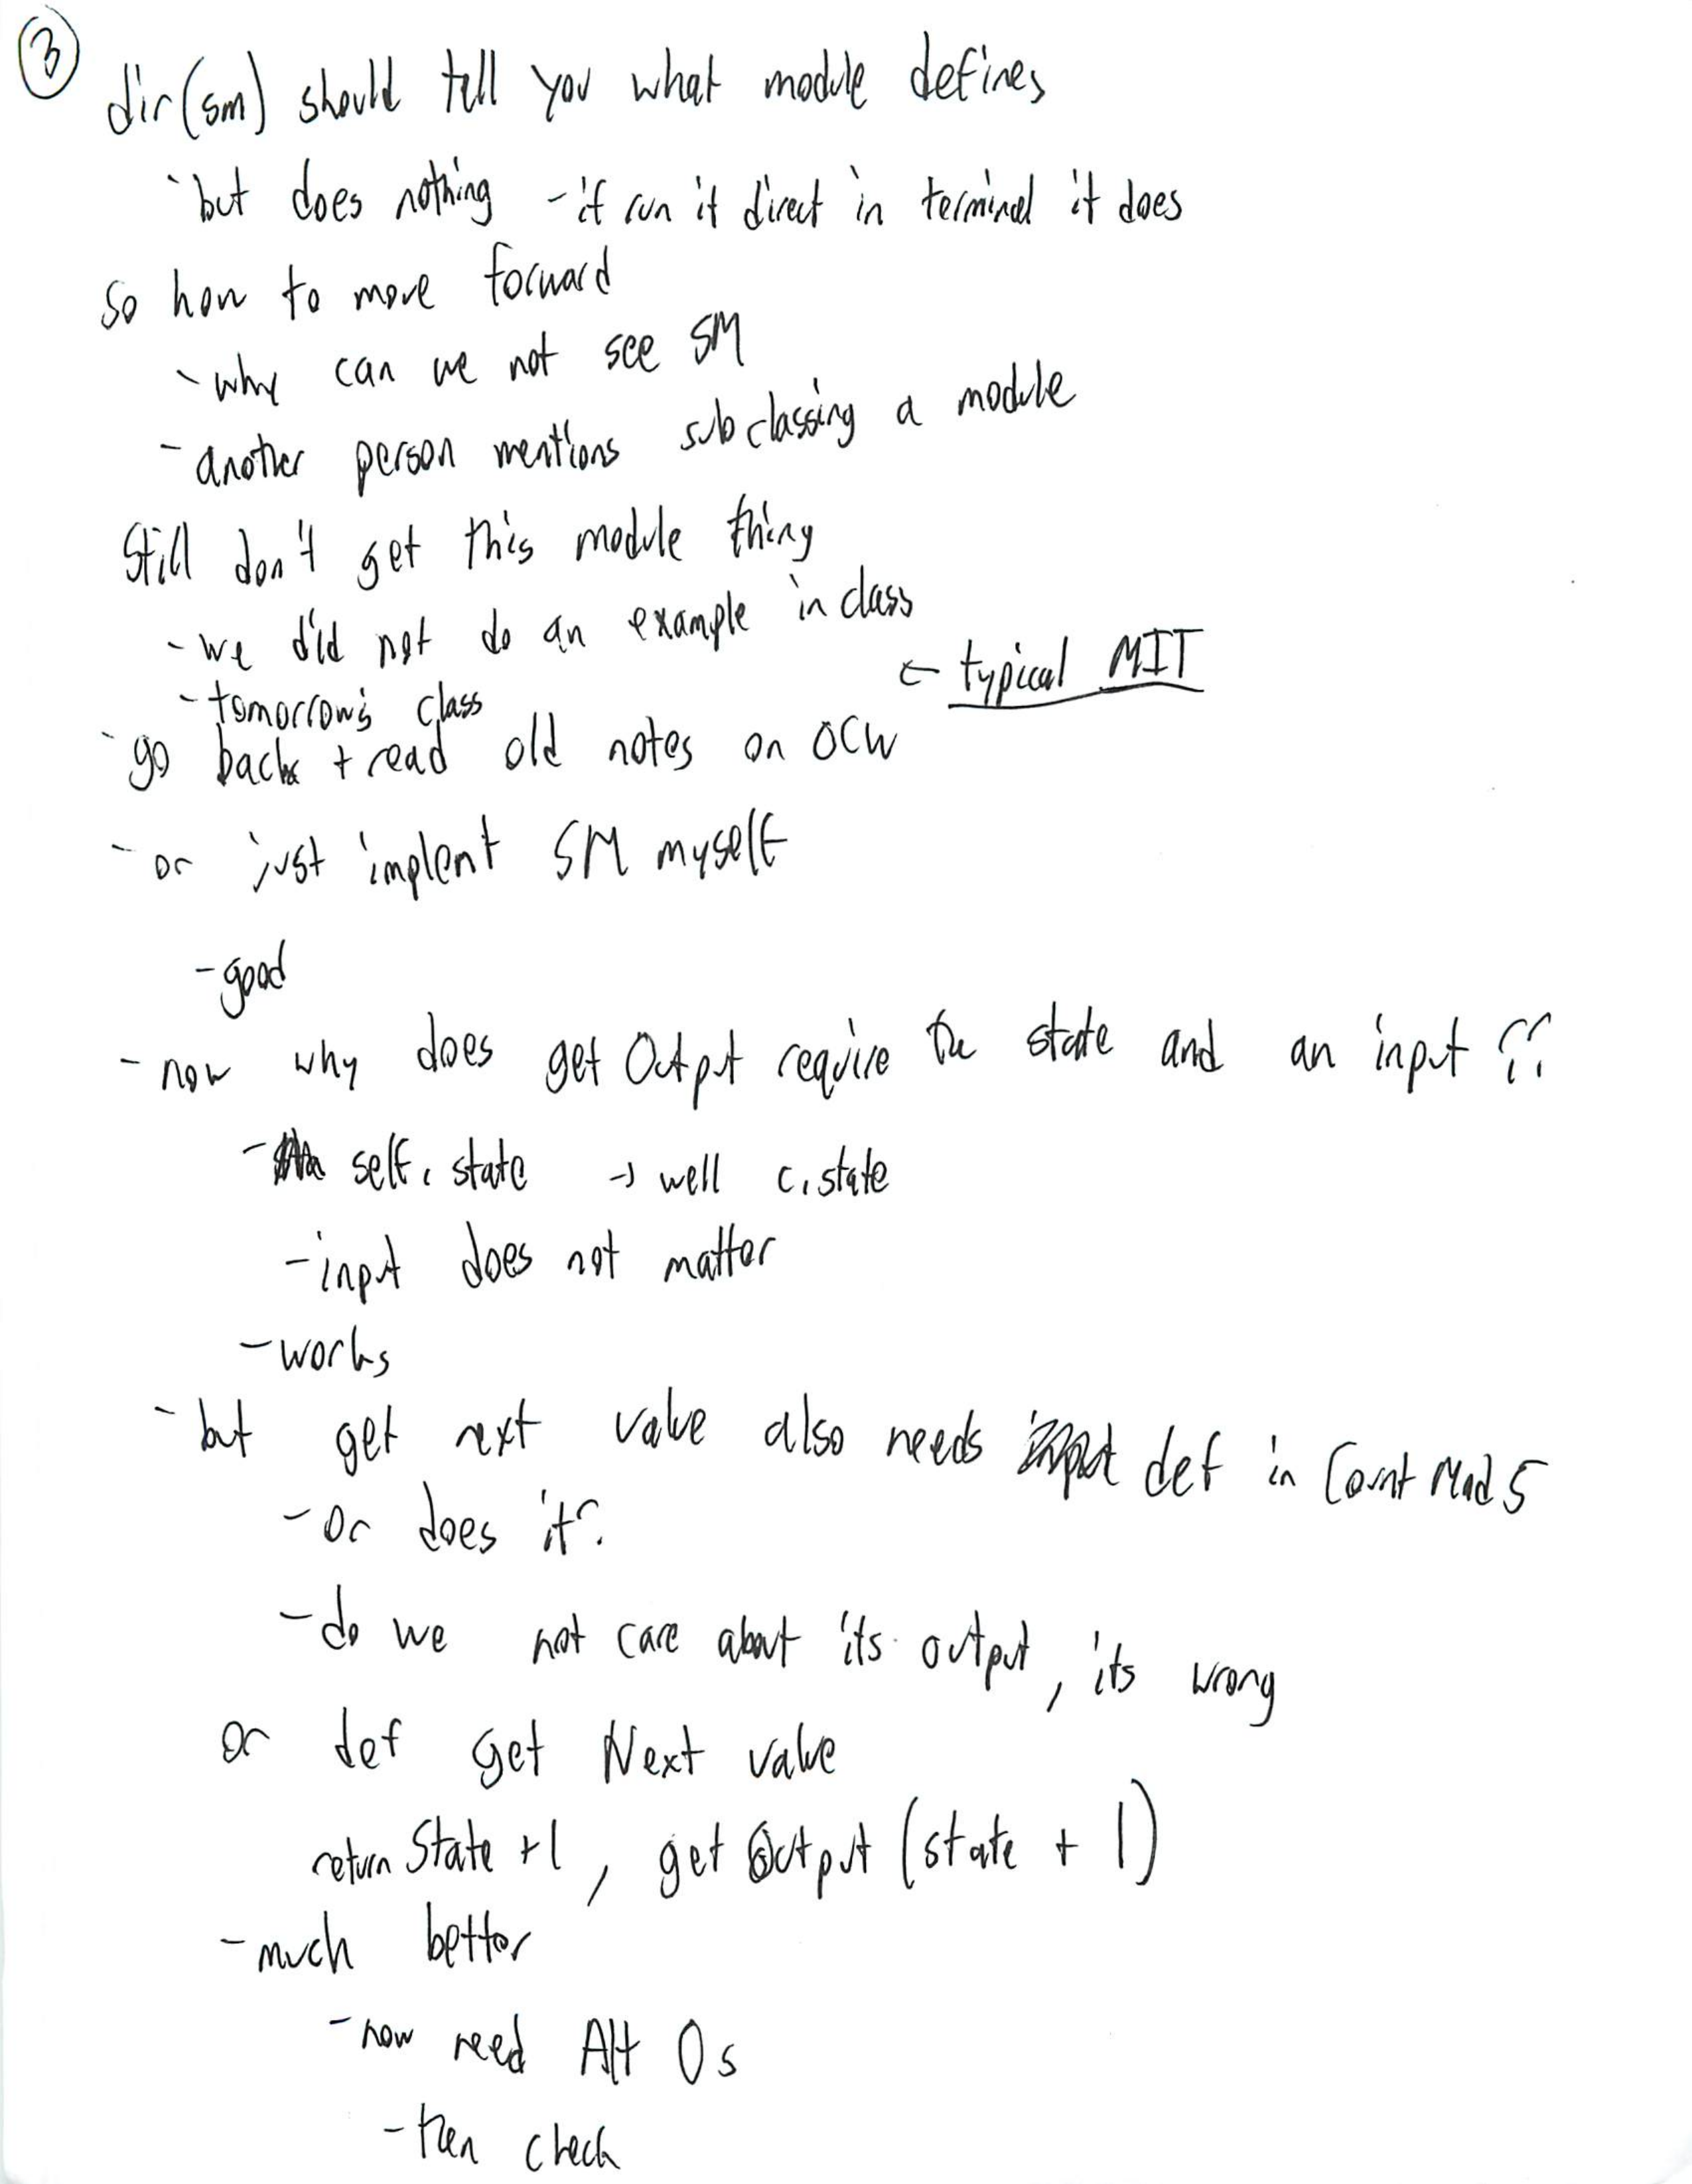 3
dir(sm) should tell you what module defines
-but does nothing -if run it direct in terminal it does
so how to move forward
-why can we not see SM
-another person mentions subclassing a module
Still don't get this module thing
-we did not do an example in class
← typical MIT
-tomorrow's class
-go back + read old notes on OCW
-or just implent SM myself
-good
-now why does get Output require the state and an input ??
-self.state → well c.state
-input does not matter
-works
-but get next value also needs def in Count Mod 5
-or does it?
-do we not care about its output, its wrong
or def get Next value
return State +1, get Output (state + 1)
-much better
-now need Alt 0s
-then check